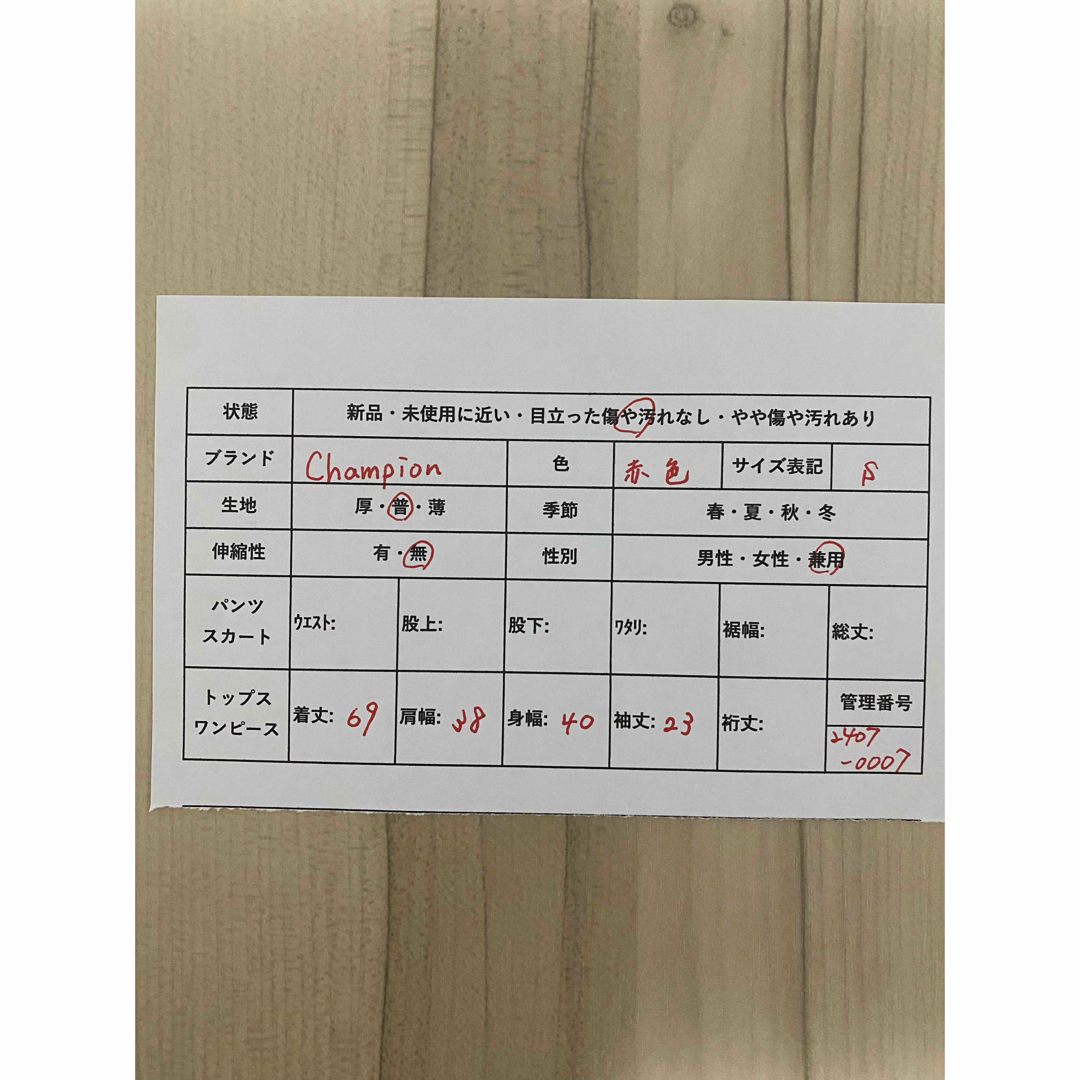 状態 新品・未使用に近い・目立った傷や汚れなし・やや傷や汚れあり
ブランド Champion 色 赤色 サイズ表記 S
生地 厚・普・薄 季節 春・夏・秋・冬
伸縮性 有・無 性別 男性・女性・兼用
パンツ
スカート
ｳｴｽﾄ: 股上: 股下: ﾜﾀﾘ: 裾幅: 総丈:
トップス
ワンピース
着丈: 69 肩幅: 38 身幅: 40 袖丈: 23 裄丈:
管理番号
2407
-0007